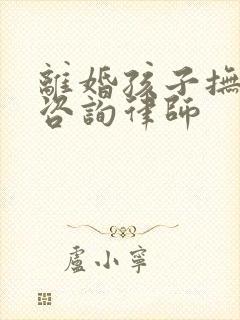 離婚孩子撫
咨詢律師
盧小寧